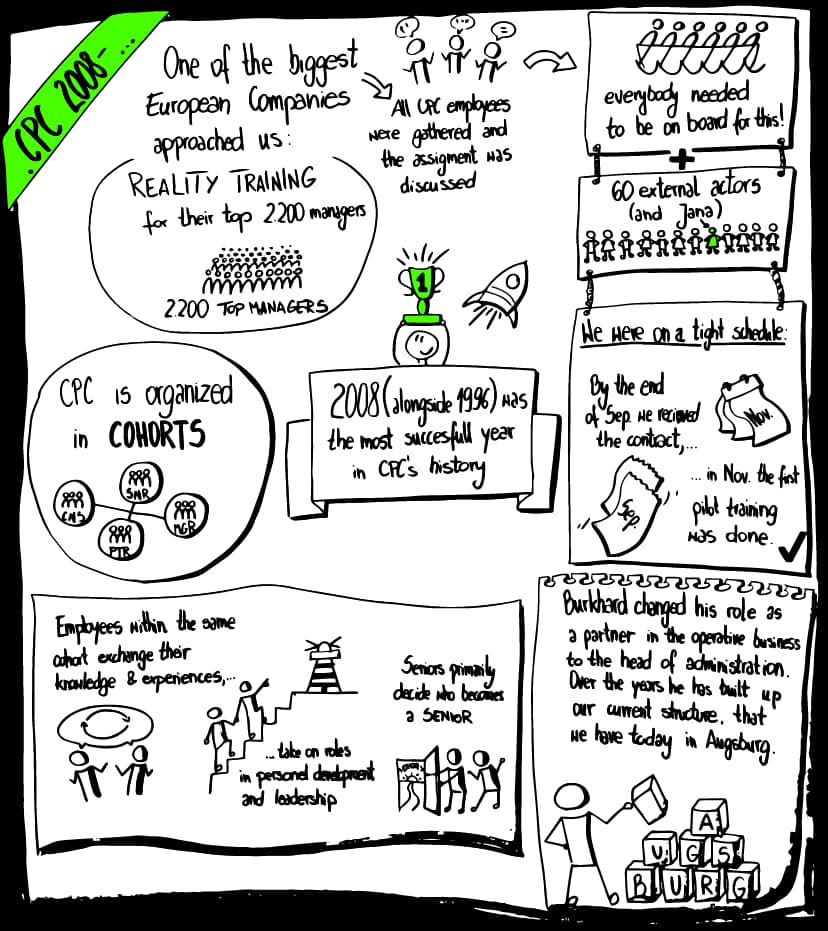 CPC 2008- ...
One of the biggest
European Companies
approached us:
REALITY TRAINING
for their top 2.200 managers
2.200 TOP MANAGERS
All CPC employees
were gathered and
the assigment was
discussed
everybody needed
to be on board for this!
+
60 external actors
(and Jana)
We were on a tight schedule:
By the end
of Sep. we recieved
the contract,...
Nov.
... in Nov. the first
pilot training
was done.
Sep.
1
2008 (alongside 1996) was
the most succesfull year
in CPC's history
CPC is organized
in COHORTS
SNR
CNS
MGR
PTR
Employees within the same
cohort exchange their
knowledge & experiences,...
... take on roles
in personel development
and leadership
Seniors primarily
decide who becomes
a SENIOR
Burkhard changed his role as
a partner in the operative business
to the head of administration.
Over the years he has built up
our current structure, that
we have today in Augsburg.
A
U G S
B U R G